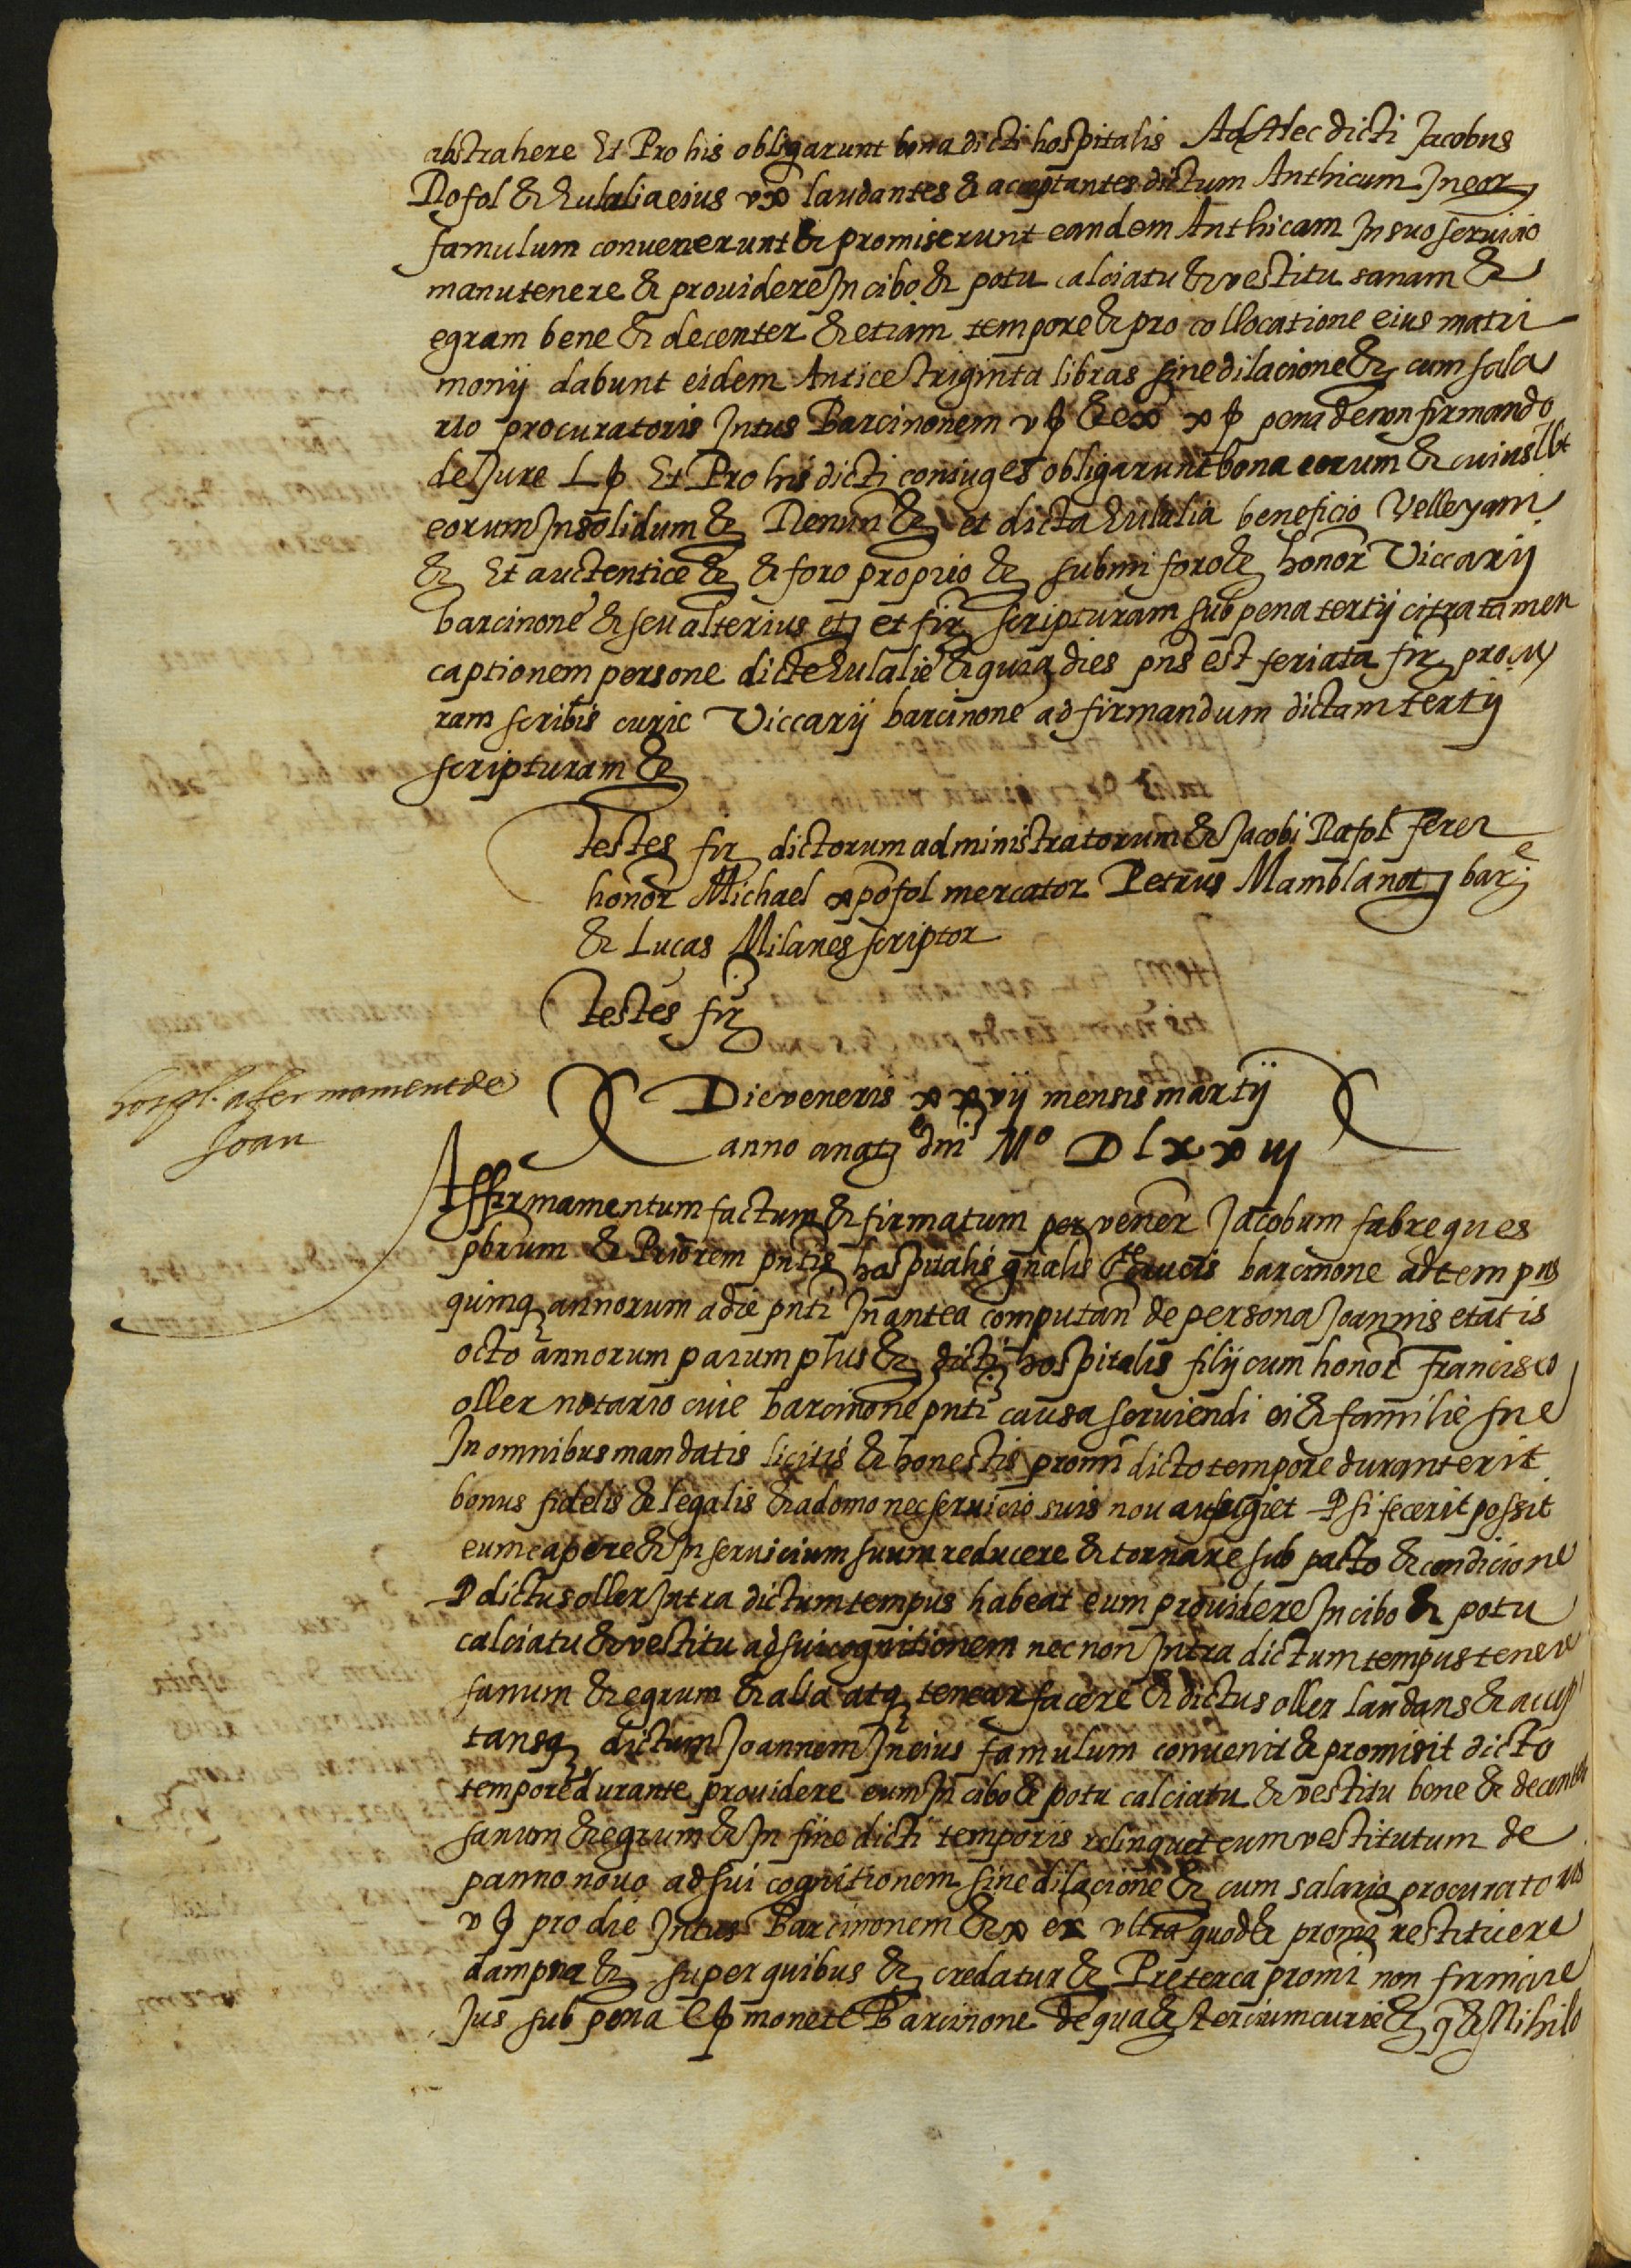 abstrahere Et Pro his obligarunt bona dicti hospitalis Ad Hec dicti Jacobus
Rafol & Eulalia eius vx laudantes & acceptantes dictum Anthicam In eor
famulum convenerunt & promiserunt eandem Anthicam In suo servicio
manutenere & providere In cibo & potu calciatu & vestitu sanam &
egram bene & decenter & etiam tempore & pro collocatione eius matri
monij dabunt eidem Antice triginta libras sine dilacione & cum sala
rio procuratoris Intus Barcinonem v ꝭ & ex x ꝭ pena de non firmando
de Jure L ꝭ Et Pro his dicti coniuges obligarunt bona eorum & cuiuslibt
eorum Insolidum & Renun & et dicta Eulalia beneficio Velleyani
& Et auctentice & & foro proprio & submi foro & honor Viccarij
barcinone & seu alterius etj et fir scripturam sub pena tertij citra tamen
captionem persone dicte Eulalie & quia dies pns est feriata fir procu
ram scribis curie Viccarij barcinone ad firmandum dictam tertij
scripturam &
Testes fir dictorum administratorum & Jacobi Rafol Feren
honor Michael xpofol mercator Petrus Mamblanot bar
& Lucas Milanes scriptor
Testes fir
hospl. afermament de
Joan
Die veneris xxvij mensis martij
anno anatj dni Mº D lxx iij
Affirmamentum factum & firmatum per vener Jacobum fabregues
pbrum & Priorem pntis hospitalis gnalis Ste crucis barcinone ad tempus
quinq annorum a die pnti In antea computan de persona Joannis etatis
octo annorum parum plus & dicti hospitalis filij cum honor Francisco
oller notario cive barcinone pnti causa serviendi ei & familie sue
In omnibus mandatis licitis & honestis promi dicto tempore durante erit
bonus fidelis & legalis & a domo nec servicio suis non aufugiet Q si fecerit possit
eum capere & In servicium suum reducere & tornare sub pacto & condicione
Q dictus oller Intra dictum tempus habeat eum providere In cibo & potu
calciatu & vestitu ad sui cognitionem nec non Intra dictum tempus tenere
sanum & egrum & alia atq tenear facere & dictus oller laudans & accep
tansq dictum Joannem In eius famulum convenit & promisit dicto
tempore durante providere eum In cibo & potu calciatu & vestitu bene & decenter
sanum & egrum & In fine dicti temporis relinquet eum vestitutum de
panno novo ad sui cognitionem sine dilacione & cum salario procuratoris
v ꝭ pro die Intus Barcinonem & x ex ultra quod & promi restituere
dampna & super quibus & credatur & Preterea promi non firmare
Jus sub pena C ꝭ monete Barcinone de qua & tercium curie & & Nihilo